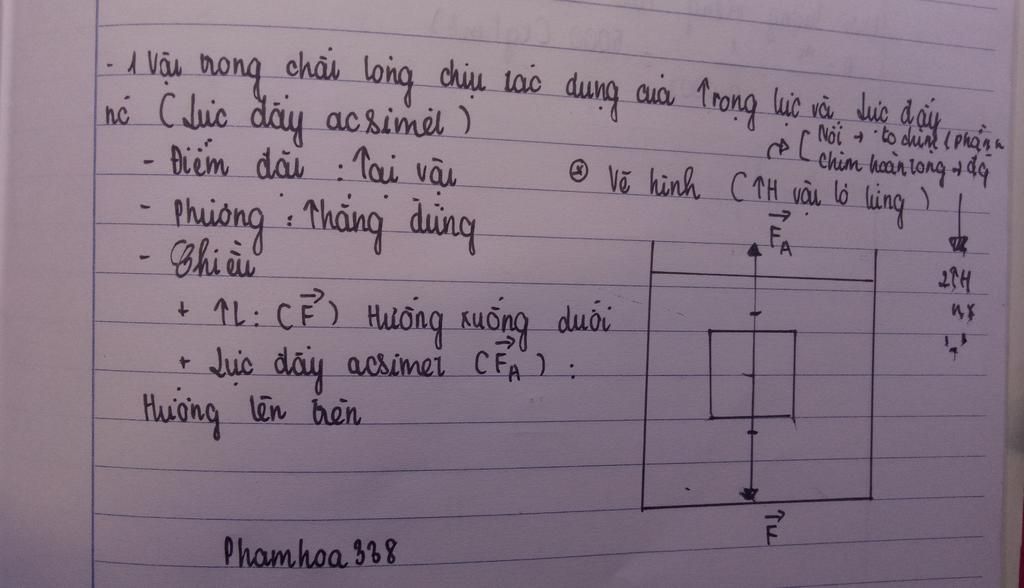 - 1 vật trong chất lỏng chịu tác dụng của trọng lực và lực đẩy
nó (lực đẩy acsimet)
[Nổi → to chìm (phần
chìm hoàn toàn →
- Điểm đặt : Tại vật
⊛ Vẽ hình (TH vật lơ lửng)
- Phương : Thẳng đứng
- Chiều
+ TL: (F) Hướng xuống dưới
+ Lực đẩy acsimet (F_A) :
Hướng lên trên
F_A
2TH
F
Phamhoa338